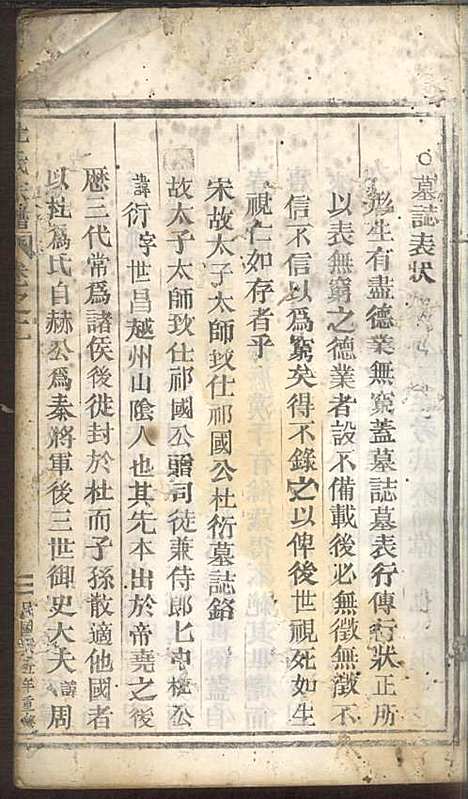 ○墓誌表狀
形生有盡德業無窮蓋墓誌墓表行傳行狀正所
以表無窮之德業者設不備載後必無徵無徵不
信不信以為窮矣得不錄之以俾後世視死如生
視仁如存者乎
宋故太子太師致仕祁國公杜衍墓誌銘
故太子太師致仕祁國公贈司徒兼侍郎杜公
諱衍字世昌越州山陰人也其先本出於帝堯之後
歷三代常爲諸侯後徙封於杜而子孫散適他國者
以杜爲氏自赫公爲秦將軍後三世御史大夫諱周
氏譜
卷之
年重